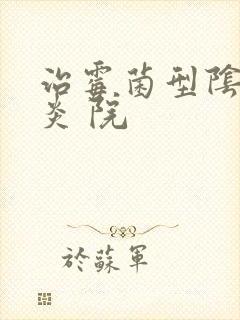 治霉菌型陰
炎 院
於蘇軍